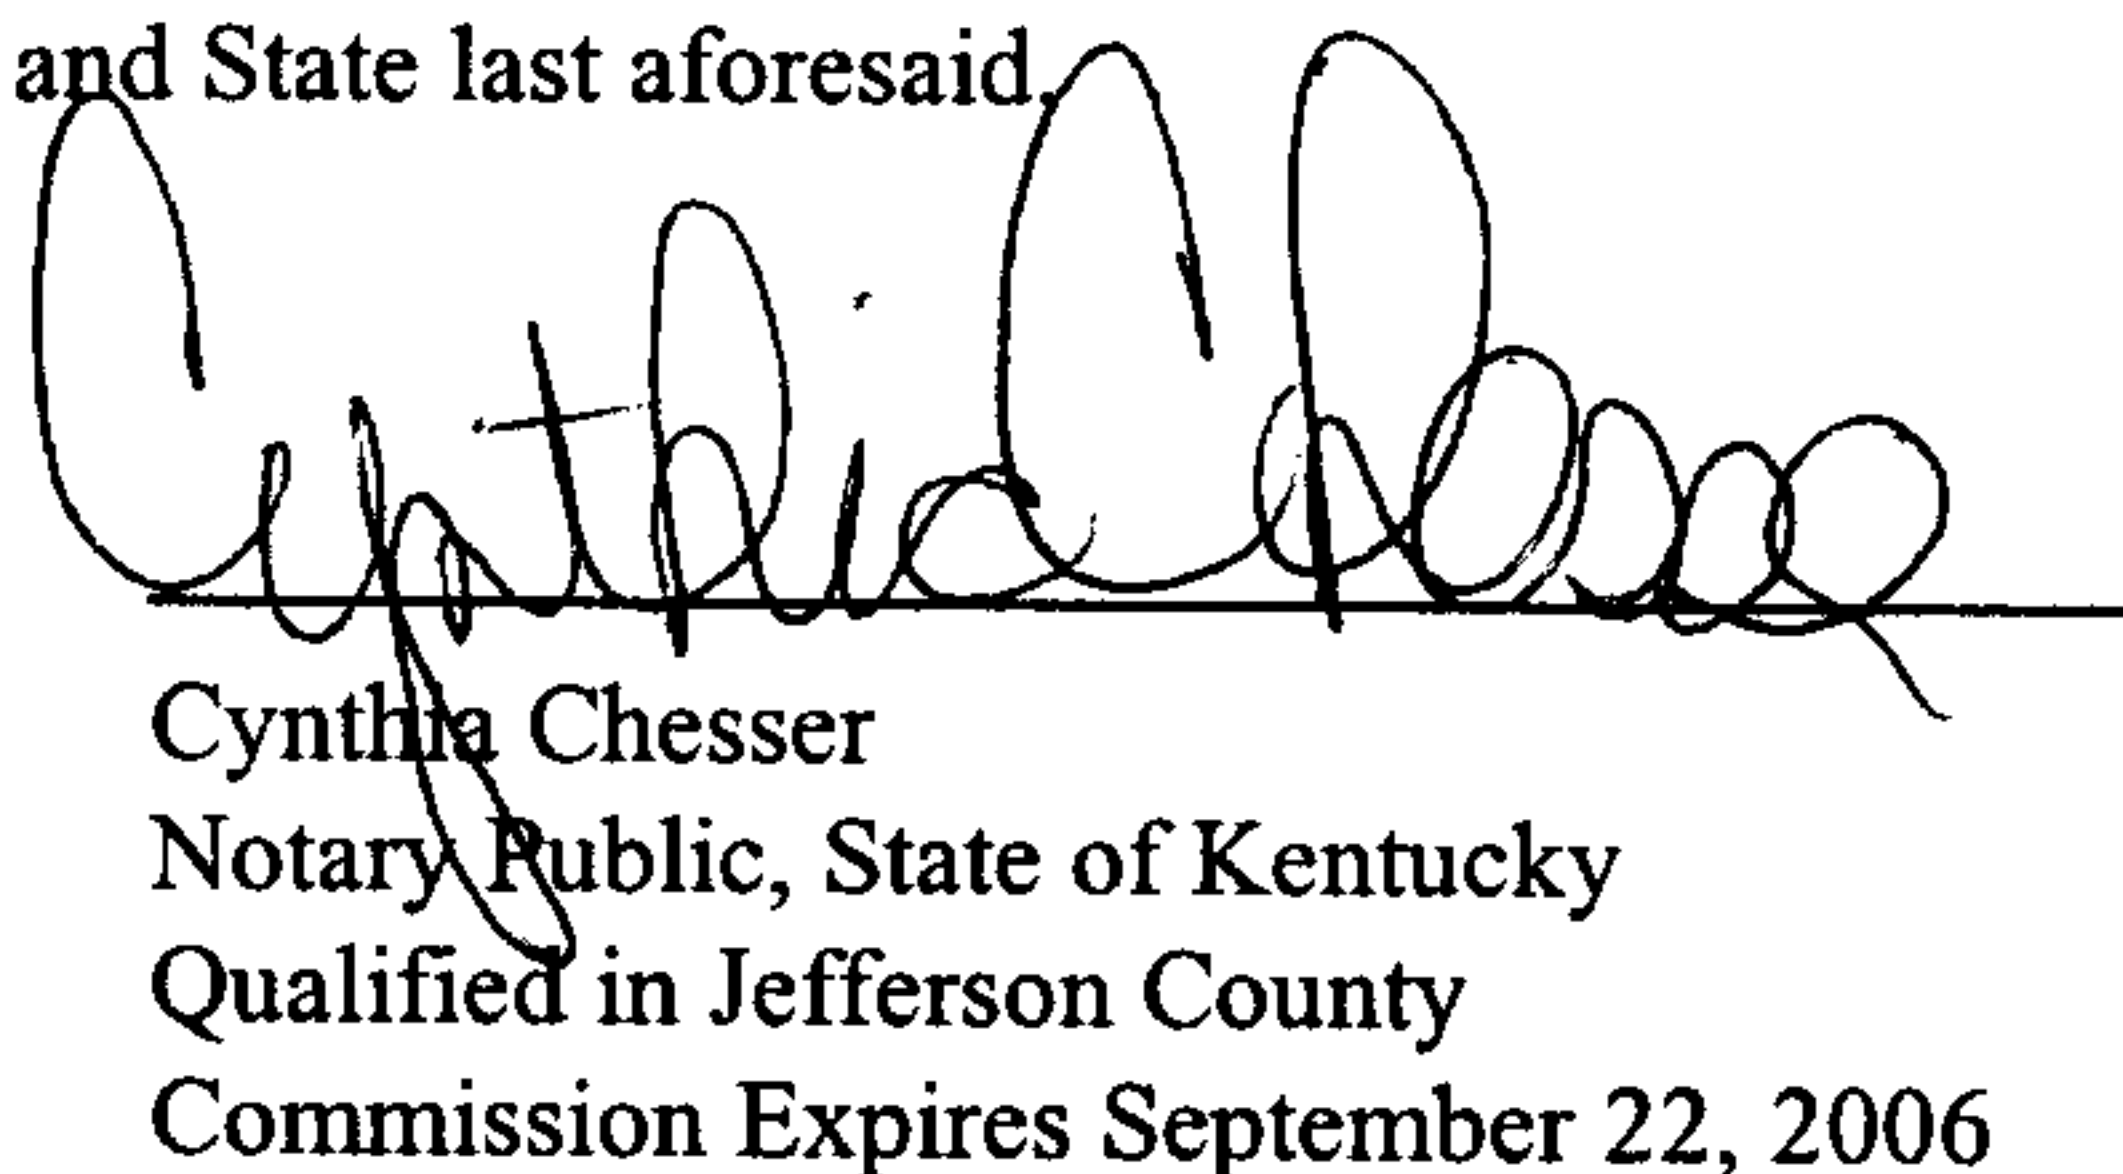 and State last aforesaid.
Cynthia Chesser
Cynthia Chesser
Notary Public, State of Kentucky
Qualified in Jefferson County
Commission Expires September 22, 2006